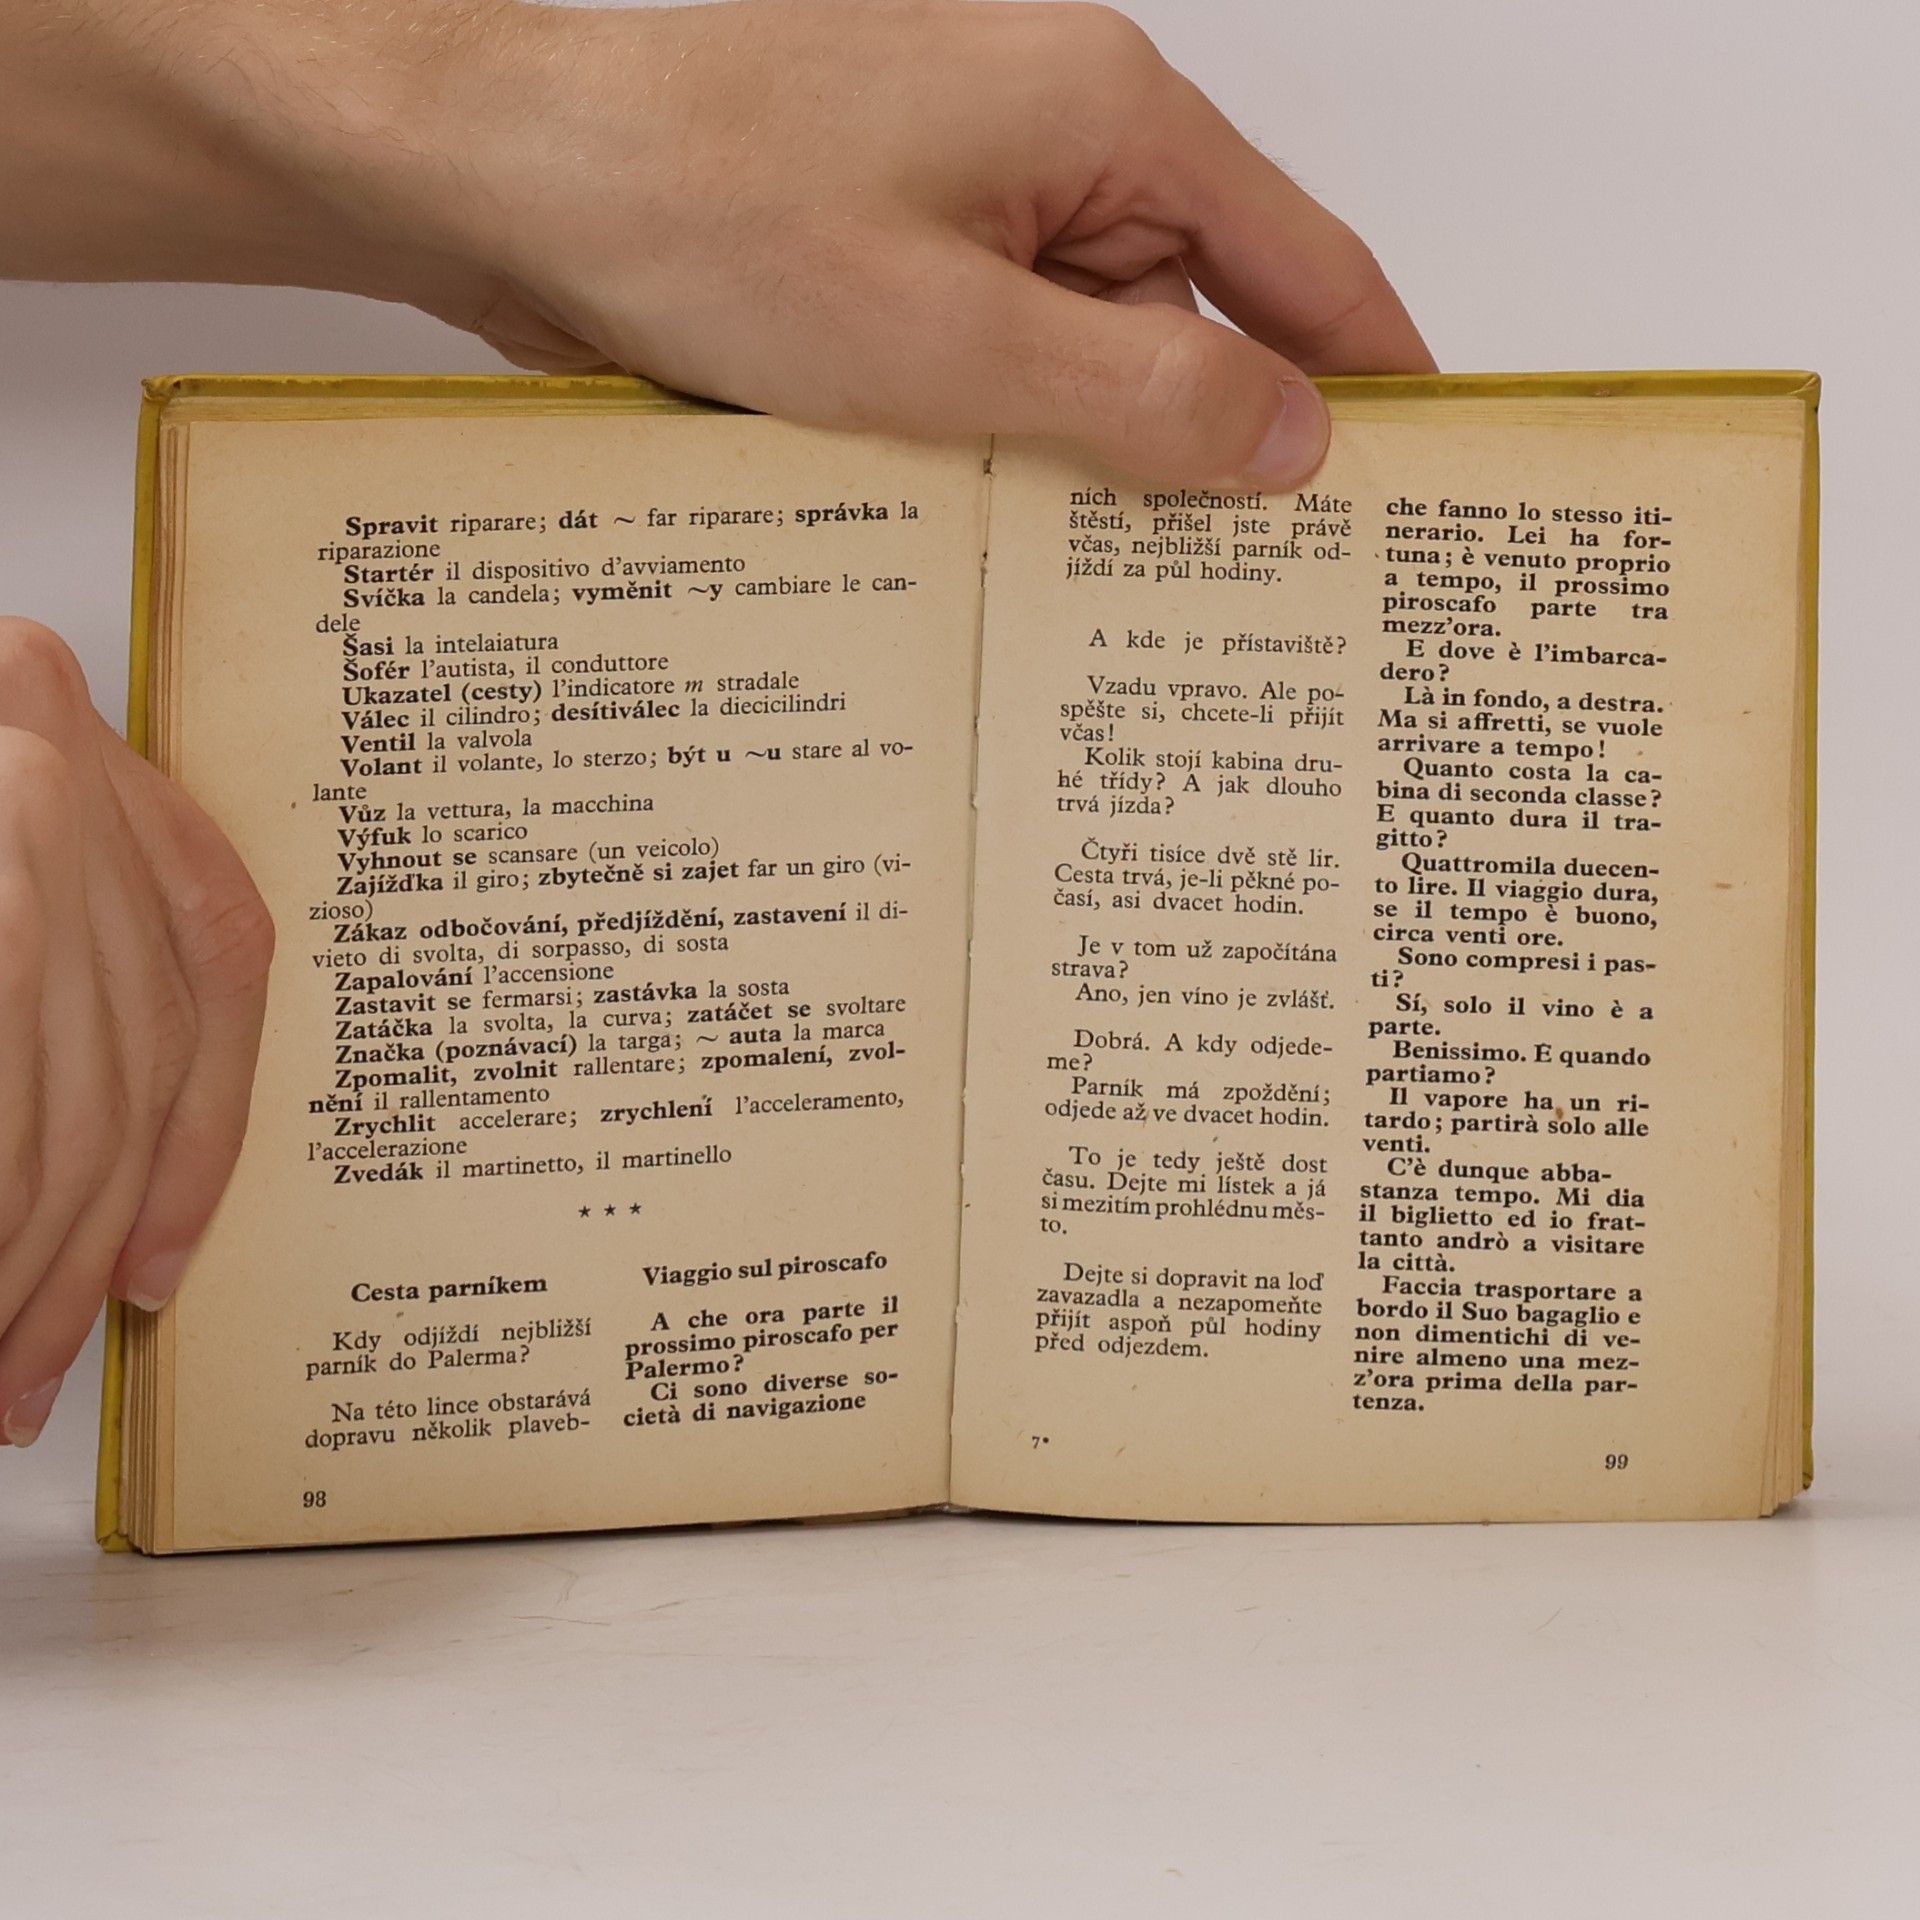 Spravit riparare; dát ~ far riparare; správka la
riparazione
Startér il dispositivo d'avviamento
Svíčka la candela; vyměnit ~y cambiare le can-
dele
Šasi la intelaiatura
Šofér l'autista, il conduttore
Ukazatel (cesty) l'indicatore m stradale
Válec il cilindro; desítiválec la diecicilindri
Ventil la valvola
Volant il volante, lo sterzo; být u ~u stare al vo-
lante
Vůz la vettura, la macchina
Výfuk lo scarico
Vyhnout se scansare (un veicolo)
Zajížďka il giro; zbytečně si zajet far un giro (vi-
zioso)
Zákaz odbočování, předjíždění, zastavení il di-
vieto di svolta, di sorpasso, di sosta
Zapalování l'accensione
Zastavit se fermarsi; zastávka la sosta
Zatáčka la svolta, la curva; zatáčet se svoltare
Značka (poznávací) la targa; ~ auta la marca
Zpomalit, zvolnit rallentare; zpomalení, zvol-
nění il rallentamento
Zrychlit accelerare; zrychlení l'acceleramento,
l'accelerazione
Zvedák il martinetto, il martinello
* * *
Cesta parníkem
Kdy odjíždí nejbližší
parník do Palerma?
Na této lince obstarává
dopravu několik plaveb-
Viaggio sul piroscafo
A che ora parte il
prossimo piroscafo per
Palermo?
Ci sono diverse so-
cietà di navigazione
98
ních společností. Máte
štěstí, přišel jste právě
včas, nejbližší parník od-
jíždí za půl hodiny.
A kde je přístaviště?
Vzadu vpravo. Ale po-
spěšte si, chcete-li přijít
včas!
Kolik stojí kabina dru-
hé třídy? A jak dlouho
trvá jízda?
Čtyři tisíce dvě stě lir.
Cesta trvá, je-li pěkné po-
časí, asi dvacet hodin.
Je v tom už započítána
strava?
Ano, jen víno je zvlášť.
Dobrá. A kdy odjede-
me?
Parník má zpoždění;
odjede až ve dvacet hodin.
To je tedy ještě dost
času. Dejte mi lístek a já
si mezitím prohlédnu měs-
to.
Dejte si dopravit na loď
zavazadla a nezapomeňte
přijít aspoň půl hodiny
před odjezdem.
che fanno lo stesso iti-
nerario. Lei ha for-
tuna; è venuto proprio
a tempo, il prossimo
piroscafo parte tra
mezz'ora.
E dove è l'imbarca-
dero?
Là in fondo, a destra.
Ma si affretti, se vuole
arrivare a tempo!
Quanto costa la ca-
bina di seconda classe?
E quanto dura il tra-
gitto?
Quattromila duecen-
to lire. Il viaggio dura,
se il tempo è buono,
circa venti ore.
Sono compresi i pas-
ti?
Sí, solo il vino è a
parte.
Benissimo. E quando
partiamo?
Il vapore ha un ri-
tardo; partirà solo alle
venti.
C'è dunque abba-
stanza tempo. Mi dia
il biglietto ed io frat-
tanto andrò a visitare
la città.
Faccia trasportare a
bordo il Suo bagaglio e
non dimentichi di ve-
nire almeno una mez-
z'ora prima della par-
tenza.
7*
99